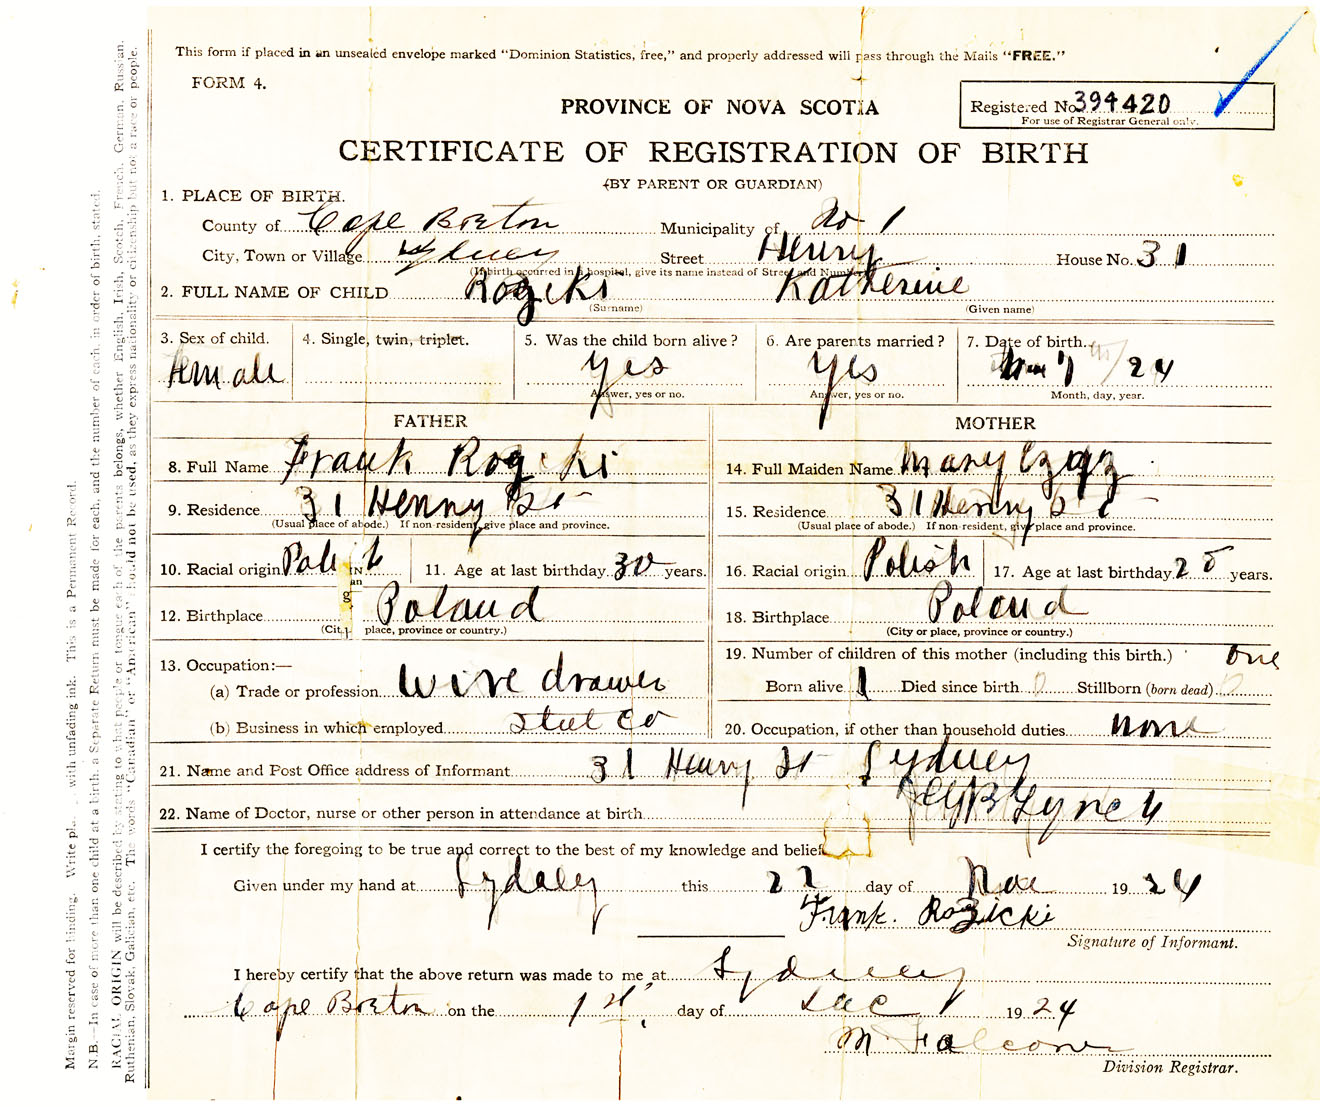 This form if placed in an unsealed envelope marked "Dominion Statistics, free," and properly addressed will pass through the Mails "FREE."
FORM 4.
Registered No. 394420
For use of Registrar General only.
PROVINCE OF NOVA SCOTIA
CERTIFICATE OF REGISTRATION OF BIRTH
(BY PARENT OR GUARDIAN)
1. PLACE OF BIRTH.
County of Cape Breton Municipality of No 1
City, Town or Village Sydney Street Henry House No. 31
(If birth occurred in a hospital, give its name instead of Street and Number)
2. FULL NAME OF CHILD Rozicki Katherine
(Surname) (Given name)
3. Sex of child. 4. Single, twin, triplet. 5. Was the child born alive? 6. Are parents married? 7. Date of birth.
Female Yes Yes 24
Answer, yes or no. Answer, yes or no. Month, day, year.
FATHER MOTHER
8. Full Name Frank Rozicki 14. Full Maiden Name Mary
9. Residence 31 Henry St 15. Residence 31 Henry St
(Usual place of abode.) If non-resident, give place and province. (Usual place of abode.) If non-resident, give place and province.
10. Racial origin Polish 11. Age at last birthday 30 years. 16. Racial origin Polish 17. Age at last birthday 25 years.
12. Birthplace Poland 18. Birthplace Poland
(City place, province or country.) (City or place, province or country.)
13. Occupation:— 19. Number of children of this mother (including this birth.) one
(a) Trade or profession Wire drawer Born alive 1 Died since birth 0 Stillborn (born dead) 0
(b) Business in which employed Steel Co 20. Occupation, if other than household duties none
21. Name and Post Office address of Informant 31 Henry St Sydney
22. Name of Doctor, nurse or other person in attendance at birth Lynch
I certify the foregoing to be true and correct to the best of my knowledge and belief
Given under my hand at Sydney this 22 day of Nov 1924
Frank. Rozicki
Signature of Informant.
I hereby certify that the above return was made to me at Sydney
Cape Breton on the 1st day of Dec 1924
M. Falconer
Division Registrar.
Margin reserved for binding. Write with unfading ink. This is a Permanent Record.
N.B.—In case of more than one child at a birth, a Separate Return must be made for each, and the number of each, in order of birth, stated.
RACIAL ORIGIN will be described by stating to what people or tongue each of the parents belongs, whether English, Irish, Scotch, French, German, Russian,
Ruthenian, Slovak, Galician, etc. The words "Canadian" or "American" should not be used, as they express nationality or citizenship but not a race or people.